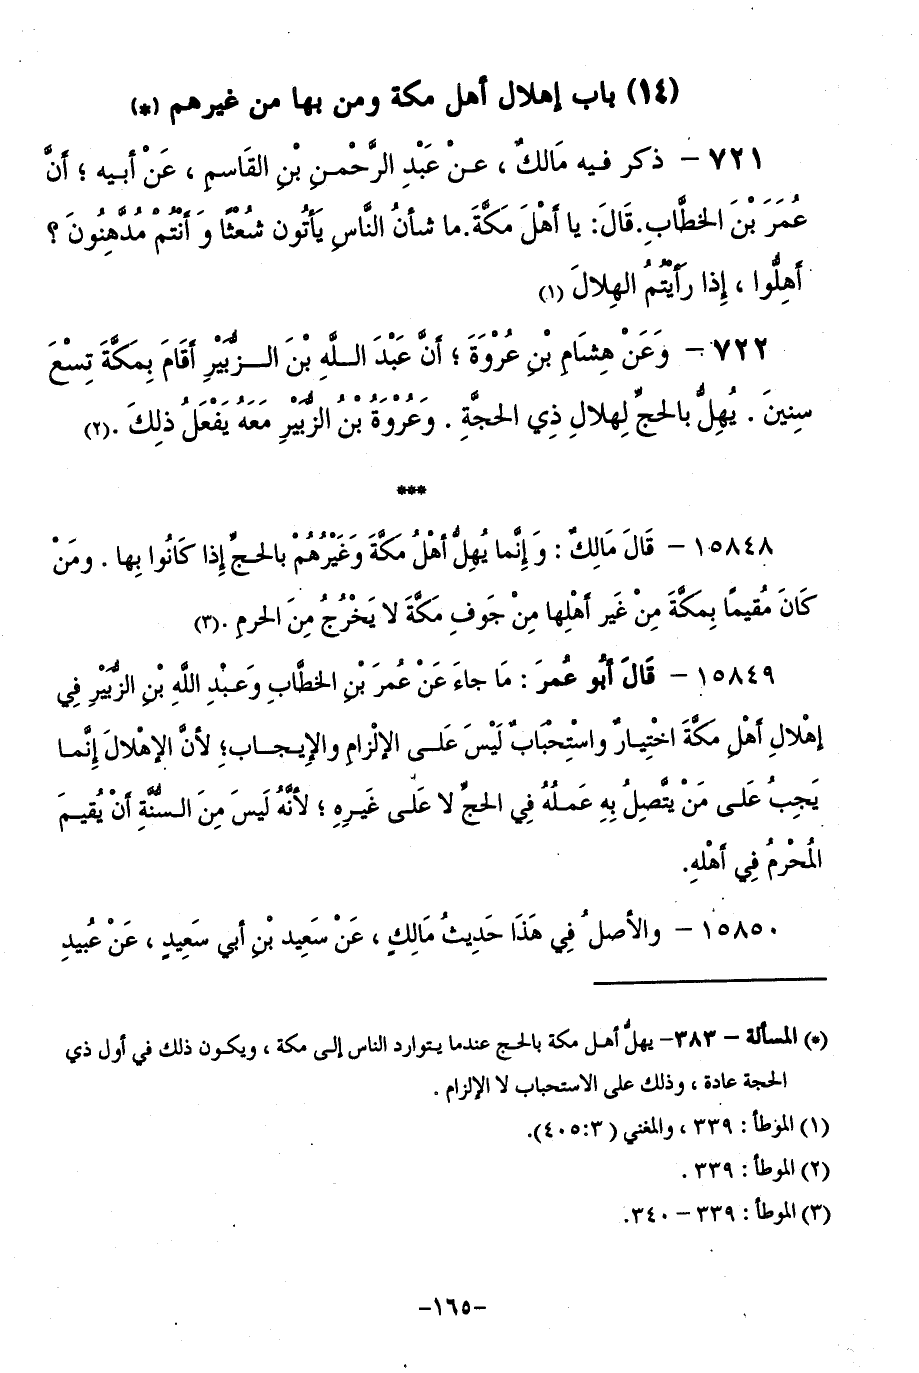 (١٤) باب إهلال أهل مكة ومن بها من غيرهم (*)
٧٢١ – ذكر فيه مَالكٌ ، عنْ عَبْدِ الرَّحْمنِ بْنِ القَاسمِ ، عَنْ أبيه ؛ أنَّ
عُمَرَ بْنَ الخطَّابِ.قَالَ: يا أهْلَ مَكَّةَ.ما شأنُ النَّاسِ يَأتُون شُعْثًا وَ أنْتُمْ مُدَّهِنُونَ ؟
أهِلُّوا ، إِذا رَأَيْتُمُ الهِلالَ (١)
٧٢٢ – وَعَنْ هِشَامِ بْنِ عُرْوَةَ ؛ أنَّ عَبْدَ اللَّهِ بْنَ الزُّبَيْرِ أقَامَ بِمَكَّةَ تِسْعَ
سِنِينَ . يُهِلُّ بالحجِّ لِهلالِ ذِي الحجَّةِ . وَعُرْوَةُ بْنُ الزُّبَيْرِ مَعَهُ يَفْعَلُ ذلِكَ .(٢)
***
١٥٨٤٨ – قَالَ مَالِكٌ : وَإِنَّما يُهِلُّ أهْلُ مكَّةَ وَغَيْرُهُمْ بالحجِّ إِذا كَانُوا بِها . ومَنْ
كَانَ مُقيمًا بِمكَّةَ مِنْ غَير أهْلِها مِنْ جَوفِ مَكَّةَ لا يَخْرُجُ مِنَ الحرمِ .(٣)
١٥٨٤٩ – قَالَ أَبُو عُمَرَ : مَا جاءَ عَنْ عُمرَ بْنِ الخطَّابِ وَعَبْدِ اللَّهِ بْنِ الزُّبَيْرِ فِي
إِهْلالِ أهْلِ مكَّةَ اخْتِيارٌ واستِحْبَابٌ لَيْسَ عَلَى الإِلْزامِ والإِيجابِ؛ لأنَّ الإِهْلالَ إِنَّما
يَجِبُ عَلَى مَنْ يَتَّصِلُ بِهِ عَملُهُ فِي الحجِّ لا عَلَى غَيرِهِ ؛ لأنَّهُ لَيسَ مِنَ السُّنَّةِ أنْ يُقيمَ
المُحْرمُ فِي أهْلهِ.
١٥٨٥٠ – والأصلُ فِي هَذَا حَديثُ مَالِكٍ ، عَنْ سَعِيد بْنِ أبي سَعِيدٍ ، عَنْ عُبيدِ
(*) المسألة – ٣٨٣– يهلُّ أهل مكة بالحج عندما يتوارد الناس إلى مكة ، ويكون ذلك في أول ذي
الحجة عادة ، وذلك على الاستحباب لا الإلزام .
(١) الموطأ : ٣٣٩ ، والمغني ( ٣:٤٠٥).
(٢) الموطأ : ٣٣٩ .
(٣) الموطأ : ٣٣٩ – ٣٤٠.
–١٦٥–